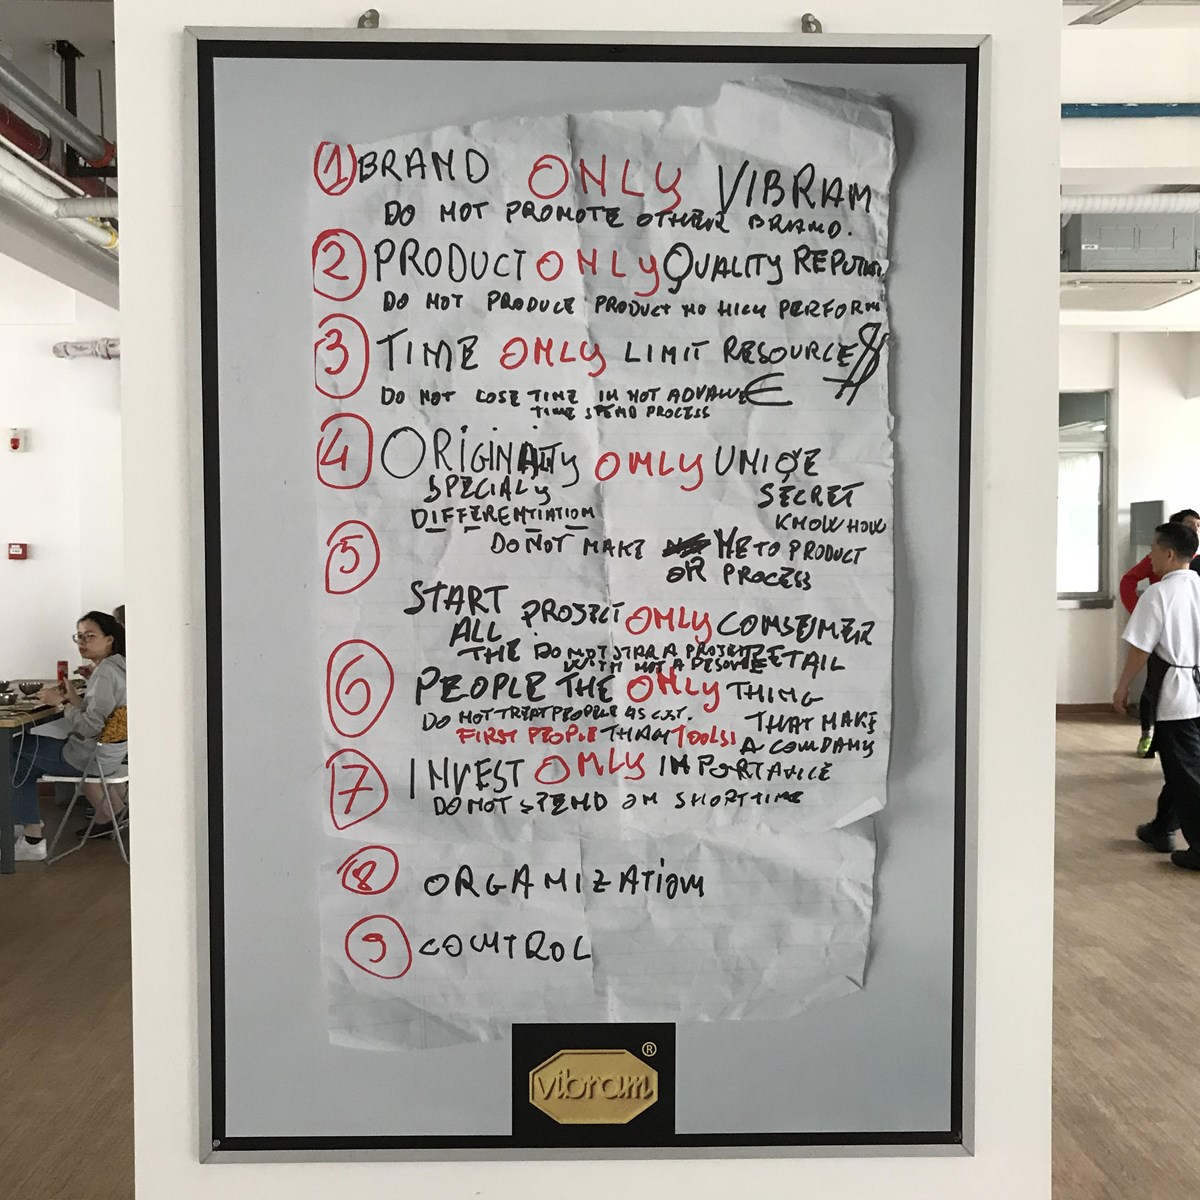 1 BRAND ONLY VIBRAM
DO NOT PROMOTE OTHER BRAND.
2 PRODUCT ONLY QUALITY
DO NOT PRODUCE PRODUCT NO HIGH PERFORM
3 TIME ONLY LIMIT RESOURCE $
DO NOT LOSE TIME IN NOT ADVANCE €
TIME SPEND PROCESS
4 ORIGINALITY ONLY UNIQE
SPECIALY SECRET
DIFFERENTIATION KNOW HOW
5 DO NOT MAKE ME TO PRODUCT
OR PROCESS
START PROJECT ONLY CONSEMER
ALL
THE DO NOT STAR A PROJECT RETAIL
WITH NOT A
6 PEOPLE THE ONLY THING
DO NOT TREAT PEOPLE AS COST. THAT MAKE
FIRST PEOPLE THAN TOOLS! A COMPANY
7 INVEST ONLY IMPORTANCE
DO NOT SPEND ON SHORT TIME
8 ORGANIZATION
9 CONTROL
vibram ®